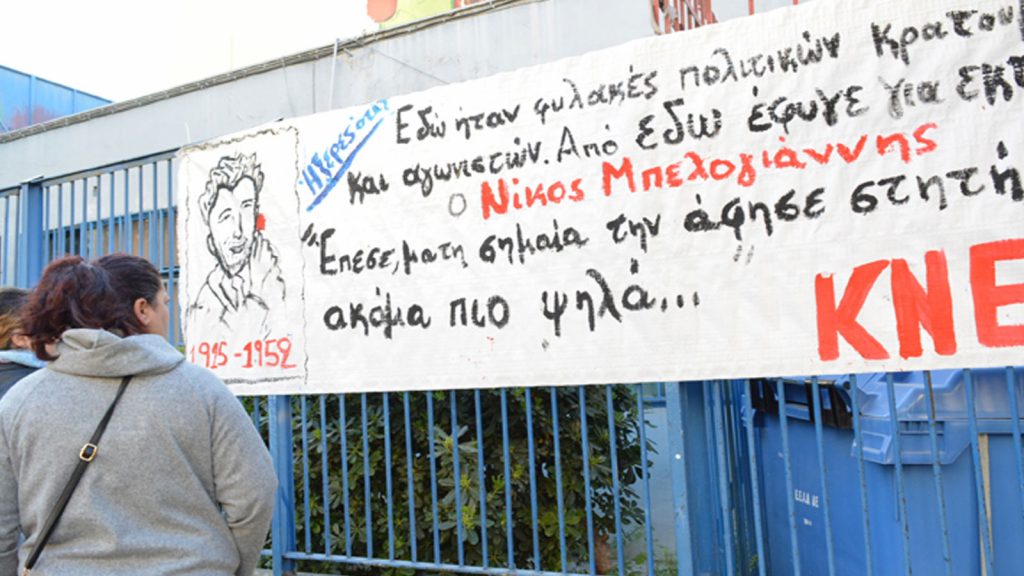 Ήξερες ότι
Εδώ ήταν φυλακές πολιτικών κρατου
και αγωνιστών. Από εδώ έφυγε για εκτ
ο Νίκος Μπελογιάννης
"Επεσε, μα τη σημαία την άφησε στητή
ακόμα πιο ψηλά...
ΚΝΕ
1915-1952